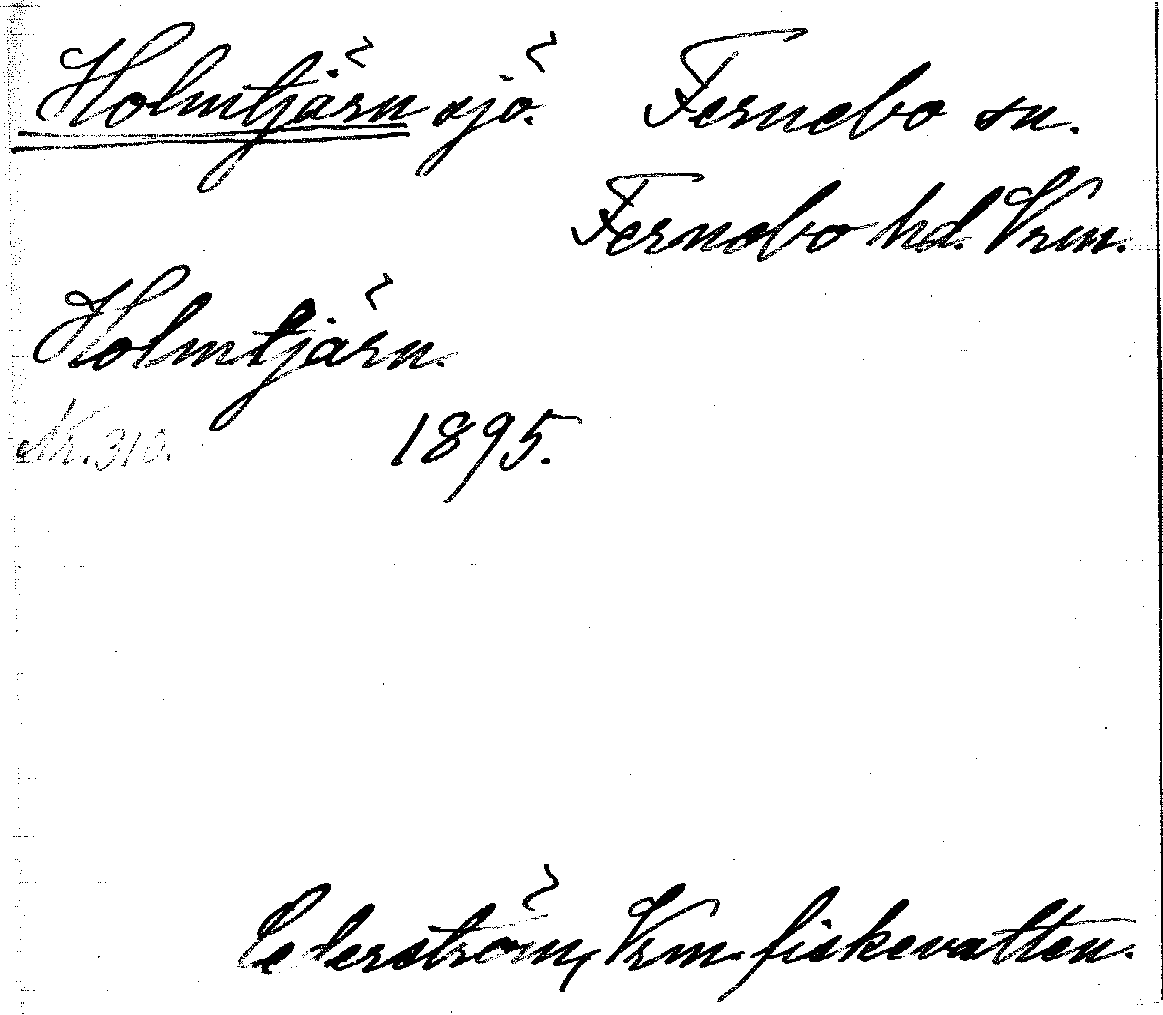 Holmtjärn sjö. Fernebo sn.
Fernebo hd. Vrm.
Holmtjärn.
Nr. 310. 1895.
Cederström, Vrm. fiskevatten.